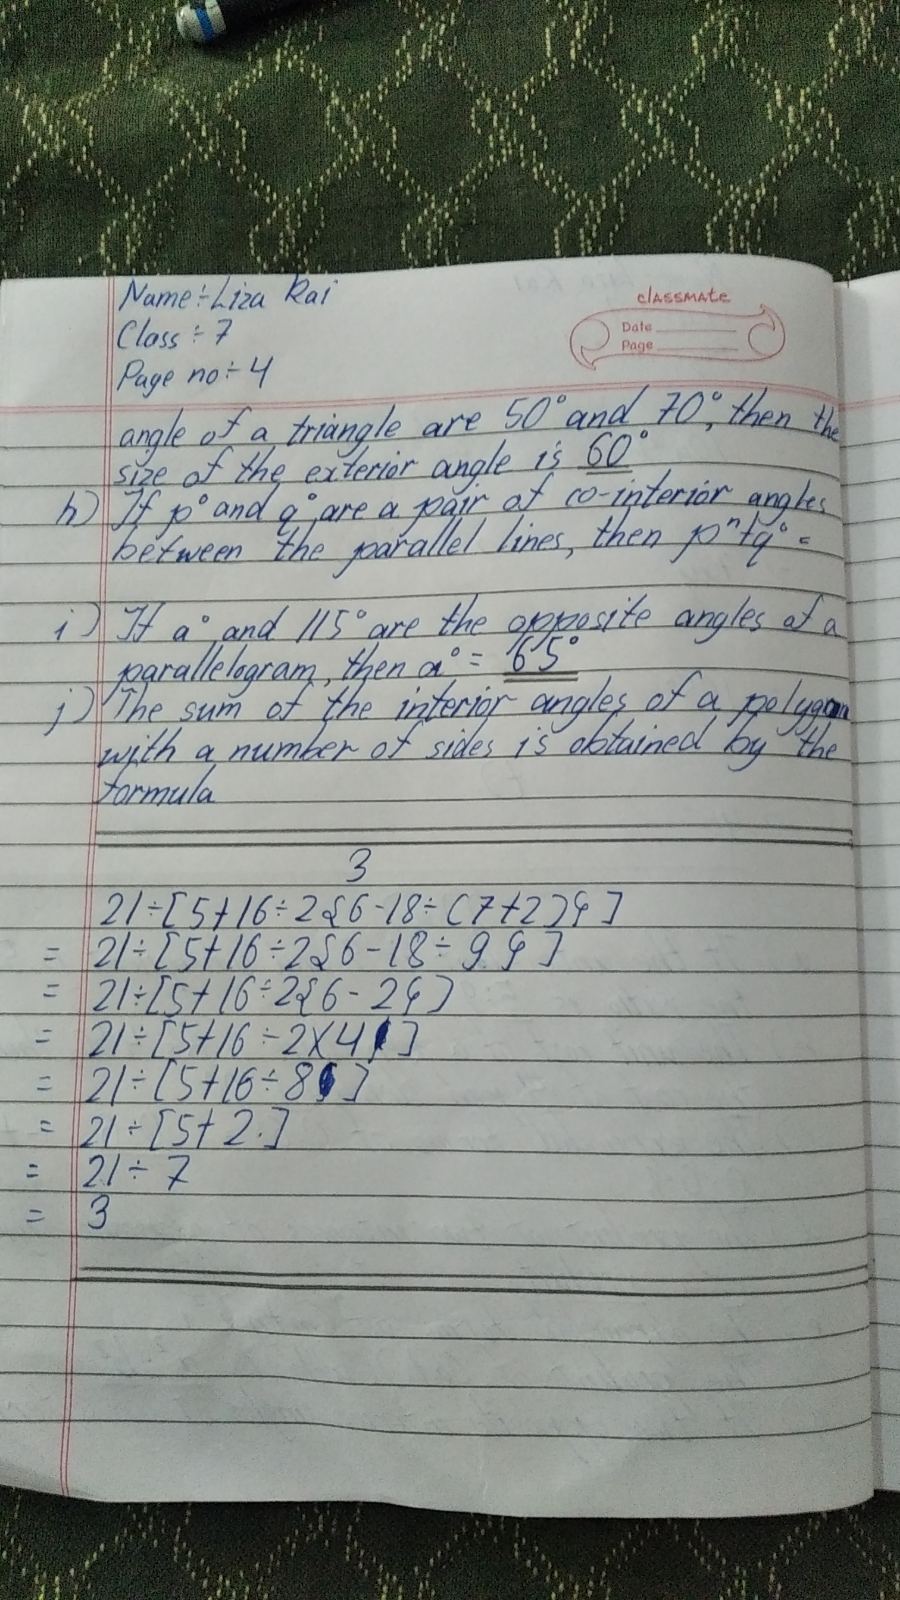 Name÷Liza Rai
Class÷7
Page no÷4
classmate
Date
Page
angle of a triangle are 50° and 70°, then the
size of the exterior angle is 60°
h) If p° and q° are a pair of co-interior angles
between the parallel lines, then pⁿ+q° =
i) If a° and 115° are the opposite angles of a
parallelogram, then a° = 65°
j) The sum of the interior angles of a polygon
with a number of sides is obtained by the
formula
3
21÷[5+16÷2{6-18÷(7+2)}]
= 21÷[5+16÷2{6-18÷9}]
= 21÷[5+16÷2{6-2}]
= 21÷[5+16÷2×4]
= 21÷[5+16÷8]
= 21÷[5+2.]
= 21÷7
= 3